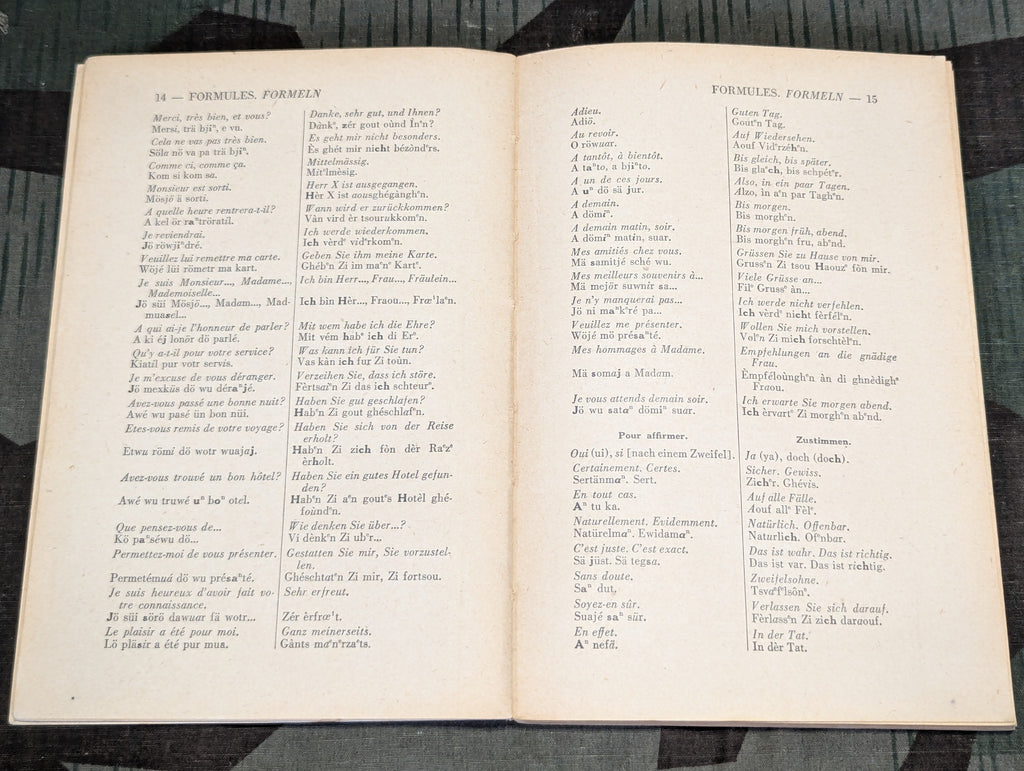 14 — FORMULES. FORMELN
Merci, très bien, et vous?
Mersi, trä bjiⁿ, e vu.
Cela ne vas pas très bien.
Söla nö va pa trä bjiⁿ.
Comme ci, comme ça.
Kom si kom sa.
Monsieur est sorti.
Mösjö ä sorti.
A quelle heure rentrera-t-il?
A kel ör raⁿtröratil.
Je reviendrai.
Jö röwjiⁿdré.
Veuillez lui remettre ma carte.
Wöjé lüi römetr ma kart.
Je suis Monsieur..., Madame...,
Mademoiselle...
Jö süi Mösjö..., Madam..., Mad-
muasel...
A qui ai-je l'honneur de parler?
A ki éj lonör dö parlé.
Qu'y a-t-il pour votre service?
Kiatil pur votr servis.
Je m'excuse de vous déranger.
Jö mexküs dö wu déraⁿjé.
Avez-vous passé une bonne nuit?
Awé wu pasé ün bon nüi.
Etes-vous remis de votre voyage?
Etwu römi dö wotr wuajaj.
Avez-vous trouvé un bon hôtel?
Awé wu truwé uⁿ boⁿ otel.
Que pensez-vous de...
Kö paⁿséwu dö...
Permettez-moi de vous présenter.
Permetémuá dö wu présaⁿté.
Je suis heureux d'avoir fait vo-
tre connaissance.
Jö süi sörö dawuar fä wotr...
Le plaisir a été pour moi.
Lö pläsir a été pur mua.
Danke, sehr gut, und Ihnen?
Dànkᵉ, zér gout oùnd Înᵉn?
Es geht mir nicht besonders.
Ès ghét mir nicht bézòndʳs.
Mittelmässig.
Mitᵉlmèsig.
Herr X ist ausgegangen.
Hèr X ist aousghégànghᵉn.
Wann wird er zurückkommen?
Vàn vird èr tsourukkomᵉn.
Ich werde wiederkommen.
Ich vèrdᵉ vidᵉrkomᵉn.
Geben Sie ihm meine Karte.
Ghébᵉn Zi im maⁱnᵉ Kartᵉ.
Ich bin Herr..., Frau..., Fräulein...
Ich bin Hèr..., Fraou..., Frœⁱlaⁱn.
Mit wem habe ich die Ehre?
Mit vém hàbᵉ ich di Erᵉ.
Was kann ich für Sie tun?
Vas kàn ich fur Zi toùn.
Verzeihen Sie, dass ich störe.
Fèrtsaⁱᵉn Zi das ich schteurᵉ.
Haben Sie gut geschlafen?
Habᵉn Zi gout ghéschlafᵉn.
Haben Sie sich von der Reise
erholt?
Habᵉn Zi zich fòn dèr Raⁱzᵉ
èrholt.
Haben Sie ein gutes Hotel gefun-
den?
Habᵉn Zi aⁱn goutᵉs Hotèl ghé-
foùndᵉn.
Wie denken Sie über...?
Vi dènkᵉn Zi ubᵉr...
Gestatten Sie mir, Sie vorzustel-
len.
Ghéschtatᵉn Zi mir, Zi fortsou.
Sehr erfreut.
Zér èrfrœⁱt.
Ganz meinerseits.
Gànts maⁱnᵉrzaⁱts.
FORMULES. FORMELN — 15
Adieu.
Adiö.
Au revoir.
O röwuar.
A tantôt, à bientôt.
A taⁿto, a bjiⁿto.
A un de ces jours.
A uⁿ dö sä jur.
A demain.
A dömiⁿ.
A demain matin, soir.
A dömiⁿ matin, suar.
Mes amitiés chez vous.
Mä samitjé sché wu.
Mes meilleurs souvenirs à...
Mä mejör suwnir sa...
Je n'y manquerai pas...
Jö ni maⁿkᵉré pa...
Veuillez me présenter.
Wöjé mö présaⁿté.
Mes hommages à Madame.
Mä somaj a Madam.
Je vous attends demain soir.
Jö wu sataⁿ dömiⁿ suar.
Pour affirmer.
Oui (ui), si [nach einem Zweifel].
Certainement. Certes.
Sertänmaⁿ. Sert.
En tout cas.
Aⁿ tu ka.
Naturellement. Evidemment.
Natürelmaⁿ. Ewidamaⁿ.
C'est juste. C'est exact.
Sä jüst. Sä tegsa.
Sans doute.
Saⁿ dut.
Soyez-en sûr.
Suajé saⁿ sür.
En effet.
Aⁿ nefä.
Guten Tag.
Goutᵉn Tag.
Auf Wiedersehen.
Aouf Vidᵉrzéhᵉn.
Bis gleich, bis später.
Bis glaⁱch, bis schpétᵉr.
Also, in ein paar Tagen.
Alzo, in aⁱn par Taghᵉn.
Bis morgen.
Bis morghᵉn.
Bis morgen früh, abend.
Bis morghᵉn fru, abᵉnd.
Grüssen Sie zu Hause von mir.
Grussᵉn Zi tsou Haouzᵉ fòn mir.
Viele Grüsse an...
Filᵉ Grussᵉ àn...
Ich werde nicht verfehlen.
Ich vèrdᵉ nicht fèrfélᵉn.
Wollen Sie mich vorstellen.
Volᵉn Zi mich forschtèlᵉn.
Empfehlungen an die gnädige
Frau.
Èmpféloùnghᵉn àn di ghnèdighᵉ
Fraou.
Ich erwarte Sie morgen abend.
Ich èrvartᵉ Zi morghᵉn abᵉnd.
Zustimmen.
Ja (ya), doch (doch).
Sicher. Gewiss.
Zichᵉr. Ghévis.
Auf alle Fälle.
Aouf allᵉ Fèlᵉ.
Natürlich. Offenbar.
Naturlich. Ofᵉnbar.
Das ist wahr. Das ist richtig.
Das ist var. Das ist richtig.
Zweifelsohne.
Tsvaⁱfᵉlsônᵉ.
Verlassen Sie sich darauf.
Fèrlassᵉn Zi zich daraouf.
In der Tat.
In dèr Tat.